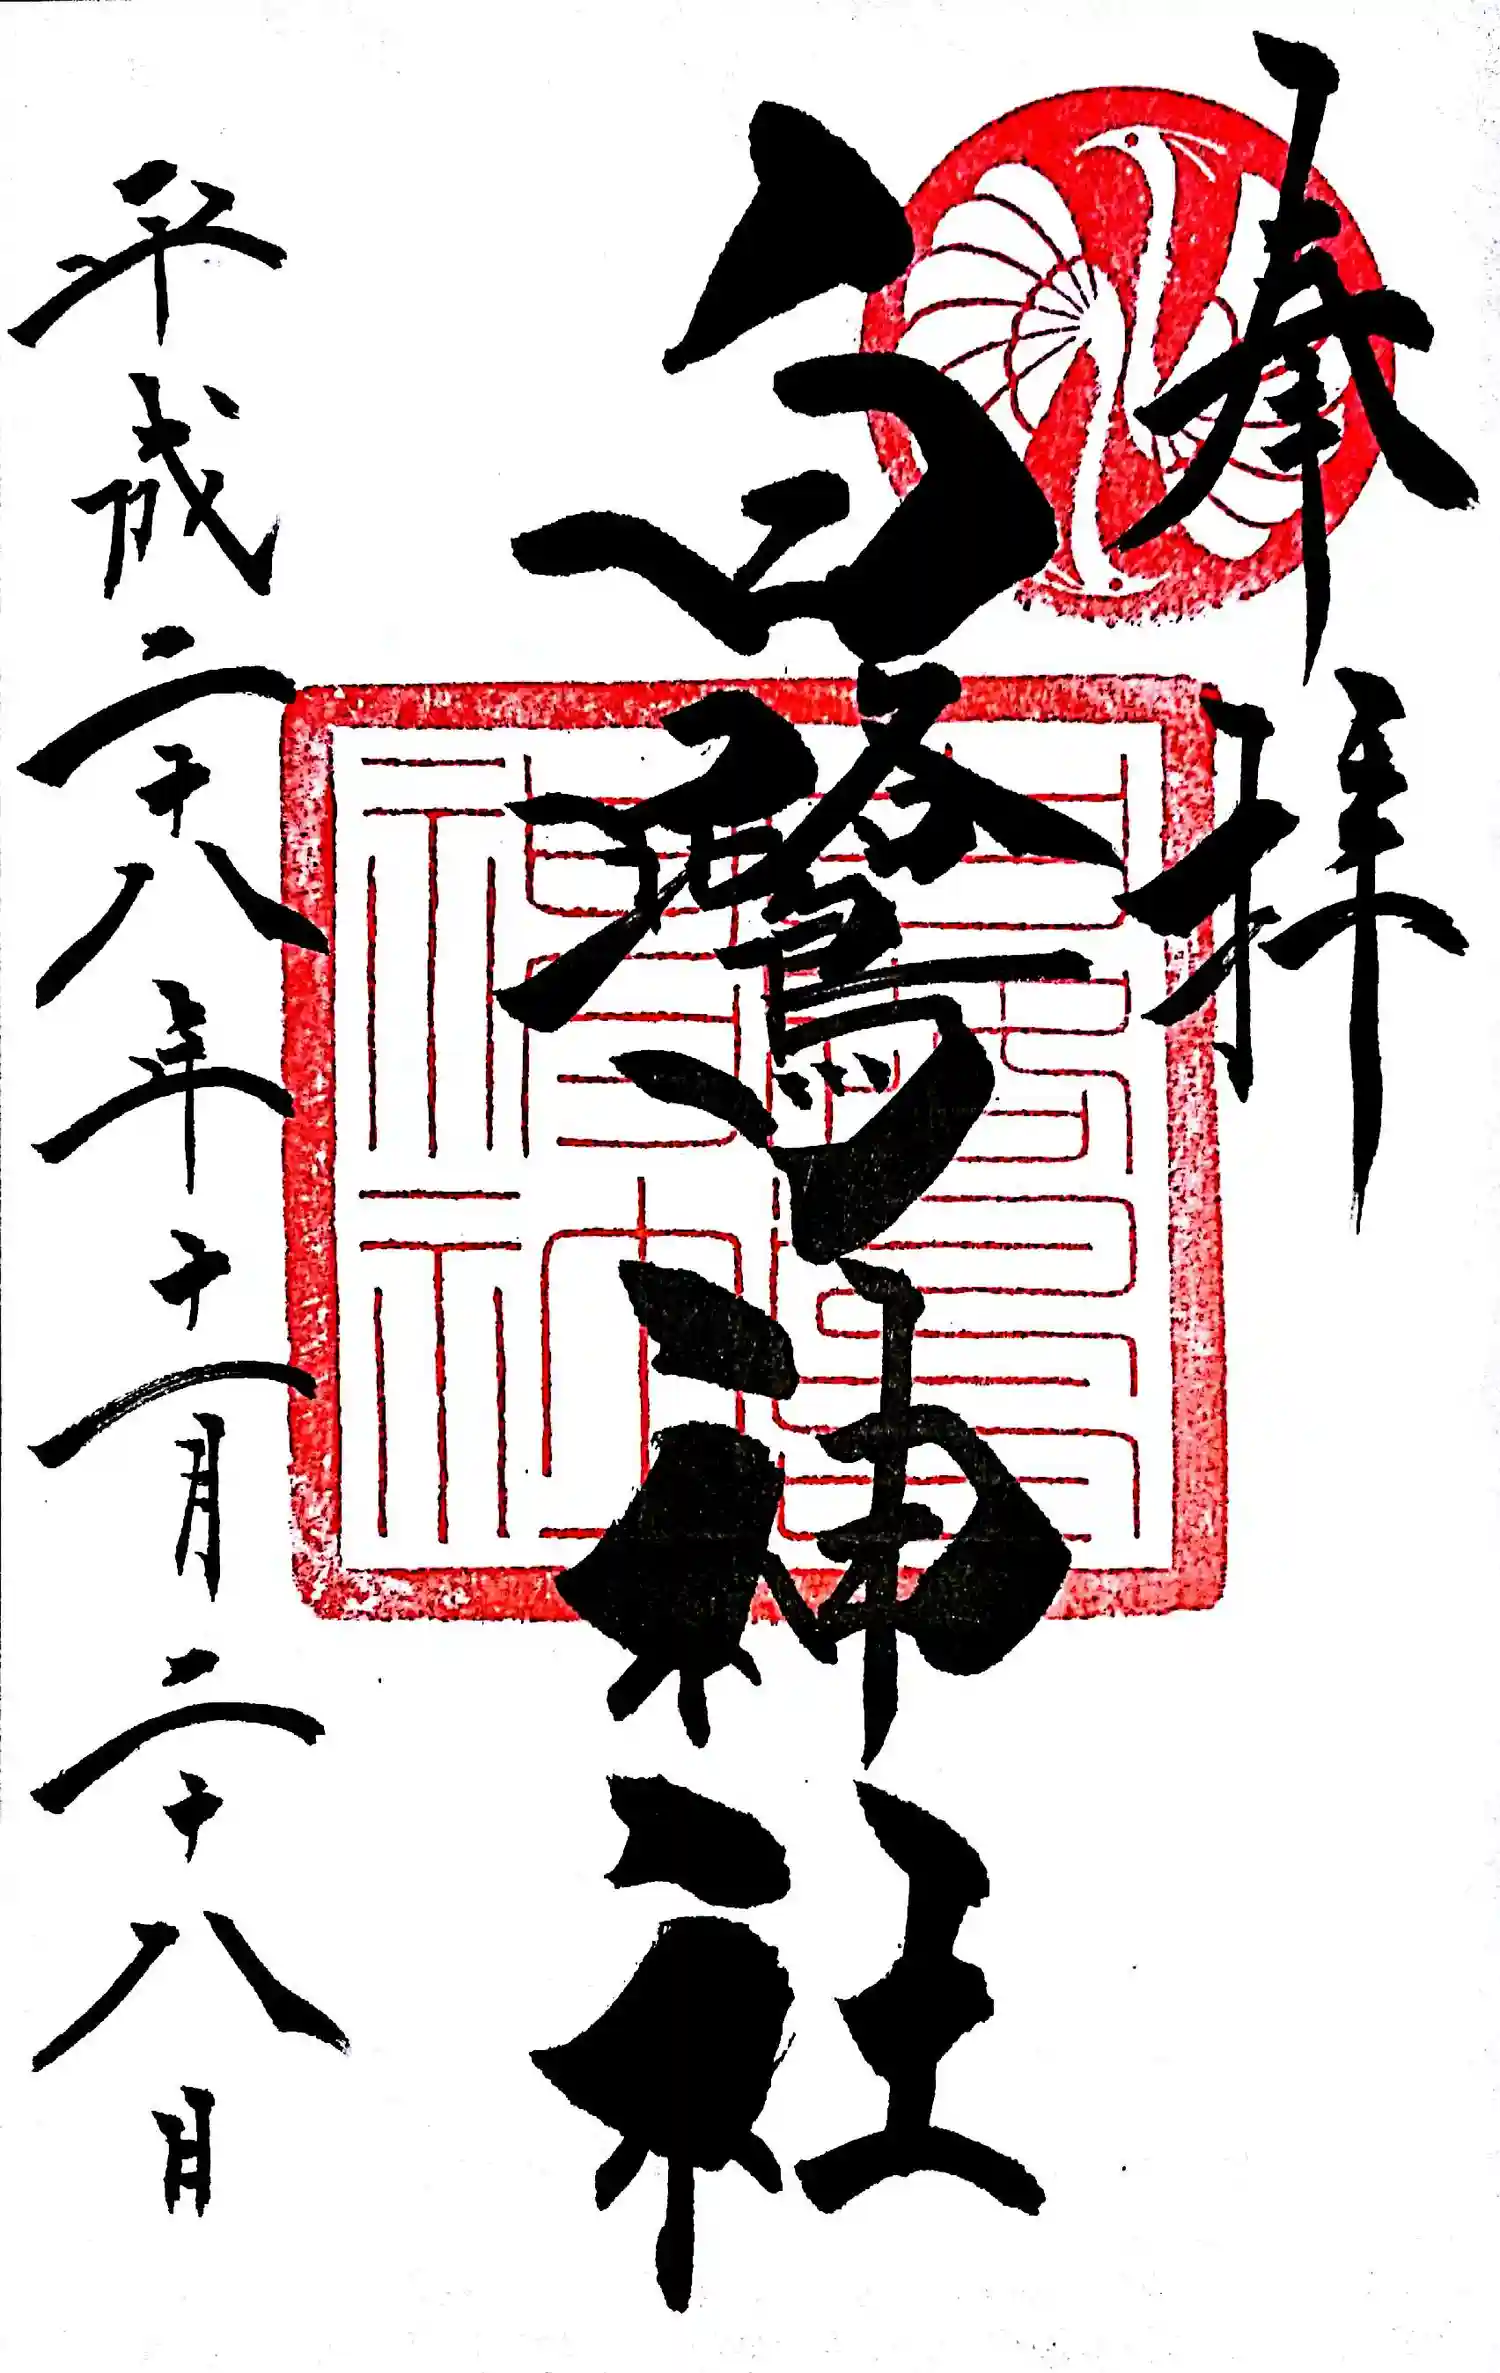 奉拝
白鷺神社
平成二十八年十一月二十八日